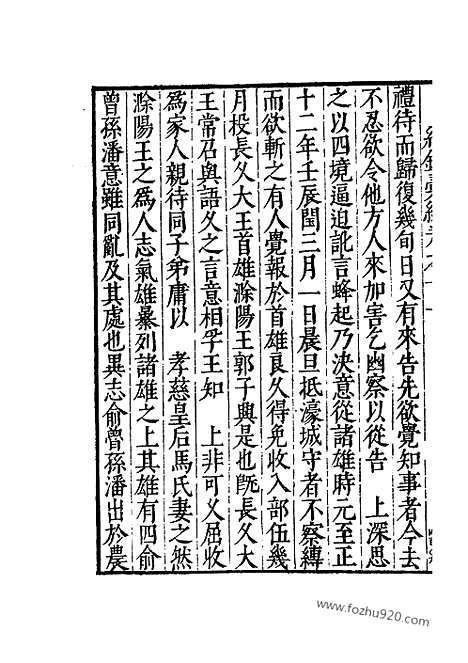 禮待而歸復幾旬日又有來告先欲覺知事者今去
不忍欲令他方人來加害乞幽察以從告 上深思
之以四境逼迫訛言蜂起乃決意從諸雄時元至正
十二年壬辰閏三月一日晨旦抵濠城守者不察縛
而欲斬之有人覺報於首雄良久得免收入部伍幾
月役長久大王首雄滁陽王郭子興是也旣長久大
王常召與語久之言意相孚王知 上非可又屈收
爲家人親待同子弟庸以 孝慈皇后馬氏妻之然
滁陽王之爲人志氣雄暴列諸雄之上其雄有四俞
曾孫潘意雖同亂及其處也異志俞曾孫潘出於農
www.fozhu920.com